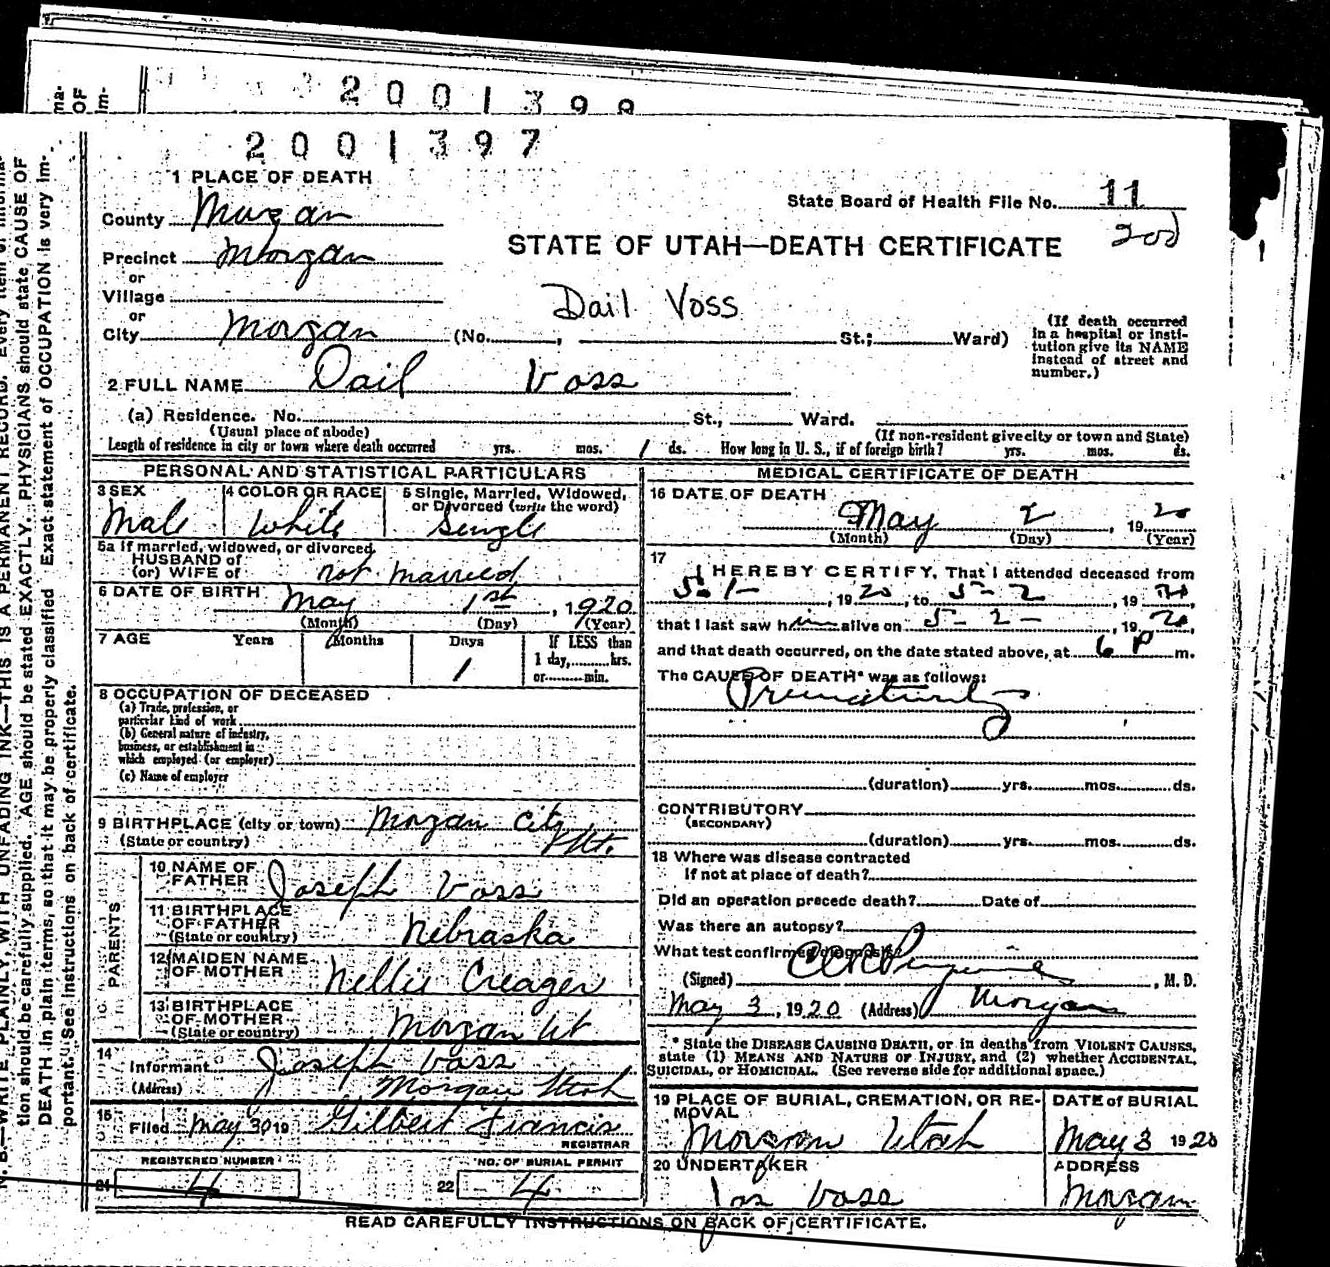 2001398
2001397
ma-
OF
im-
N. B.—WRITE PLAINLY, WITH UNFADING INK—THIS IS A PERMANENT RECORD. Every item of informa-
tion should be carefully supplied. AGE should be stated EXACTLY. PHYSICIANS should state CAUSE OF
DEATH in plain terms, so that it may be properly classified. Exact statement of OCCUPATION is very im-
portant. See instructions on back of certificate.
1 PLACE OF DEATH
State Board of Health File No. 11
200
County Morgan
STATE OF UTAH—DEATH CERTIFICATE
Precinct Morgan
or
Village
or
Dail Voss
City Morgan (No. , St.; Ward)
(If death occurred
in a hospital or insti-
tution give its NAME
instead of street and
number.)
2 FULL NAME Dail Voss
(a) Residence. No. St., Ward.
(Usual place of abode) (If non-resident give city or town and State)
Length of residence in city or town where death occurred yrs. mos. 1 ds. How long in U. S., if of foreign birth? yrs. mos. ds.
PERSONAL AND STATISTICAL PARTICULARS
3 SEX 4 COLOR OR RACE 5 Single, Married, Widowed,
or Divorced (write the word)
Male White Single
5a If married, widowed, or divorced
HUSBAND of
(or) WIFE of not married
6 DATE OF BIRTH May 1st, 1920
(Month) (Day) (Year)
7 AGE Years Months Days If LESS than
1 1 day, hrs.
or min.
8 OCCUPATION OF DECEASED
(a) Trade, profession, or
particular kind of work
(b) General nature of industry,
business, or establishment in
which employed (or employer)
(c) Name of employer
9 BIRTHPLACE (city or town) Morgan City
(State or country) Ut.
PARENTS
10 NAME OF
FATHER Joseph Voss
11 BIRTHPLACE
OF FATHER
(State or country) Nebraska
12 MAIDEN NAME
OF MOTHER Nellie Creager
13 BIRTHPLACE
OF MOTHER
(State or country) Morgan Ut
14
Informant Joseph Voss
(Address) Morgan Utah
15
Filed May 30 19 Gilbert Francis
REGISTRAR
REGISTERED NUMBER NO. OF BURIAL PERMIT
21 4 22 4
MEDICAL CERTIFICATE OF DEATH
16 DATE OF DEATH
May 2, 1920
(Month) (Day) (Year)
17
I HEREBY CERTIFY, That I attended deceased from
5-1-, 1920, to 5-2, 1920
that I last saw him alive on 5-2-, 1920,
and that death occurred, on the date stated above, at 6 P m.
The CAUSE OF DEATH* was as follows:
Prematurity
(duration) yrs. mos. ds.
CONTRIBUTORY
(SECONDARY)
(duration) yrs. mos. ds.
18 Where was disease contracted
If not at place of death?
Did an operation precede death? Date of
Was there an autopsy?
What test confirmed diagnosis?
(Signed) , M. D.
May 3, 1920 (Address) Morgan
* State the DISEASE CAUSING DEATH, or in deaths from VIOLENT CAUSES,
state (1) MEANS AND NATURE OF INJURY, and (2) whether ACCIDENTAL,
SUICIDAL, or HOMICIDAL. (See reverse side for additional space.)
19 PLACE OF BURIAL, CREMATION, OR RE-
MOVAL
Morgan Utah
DATE of BURIAL
May 3 1920
20 UNDERTAKER
Jos Voss
ADDRESS
Morgan
READ CAREFULLY INSTRUCTIONS ON BACK OF CERTIFICATE.